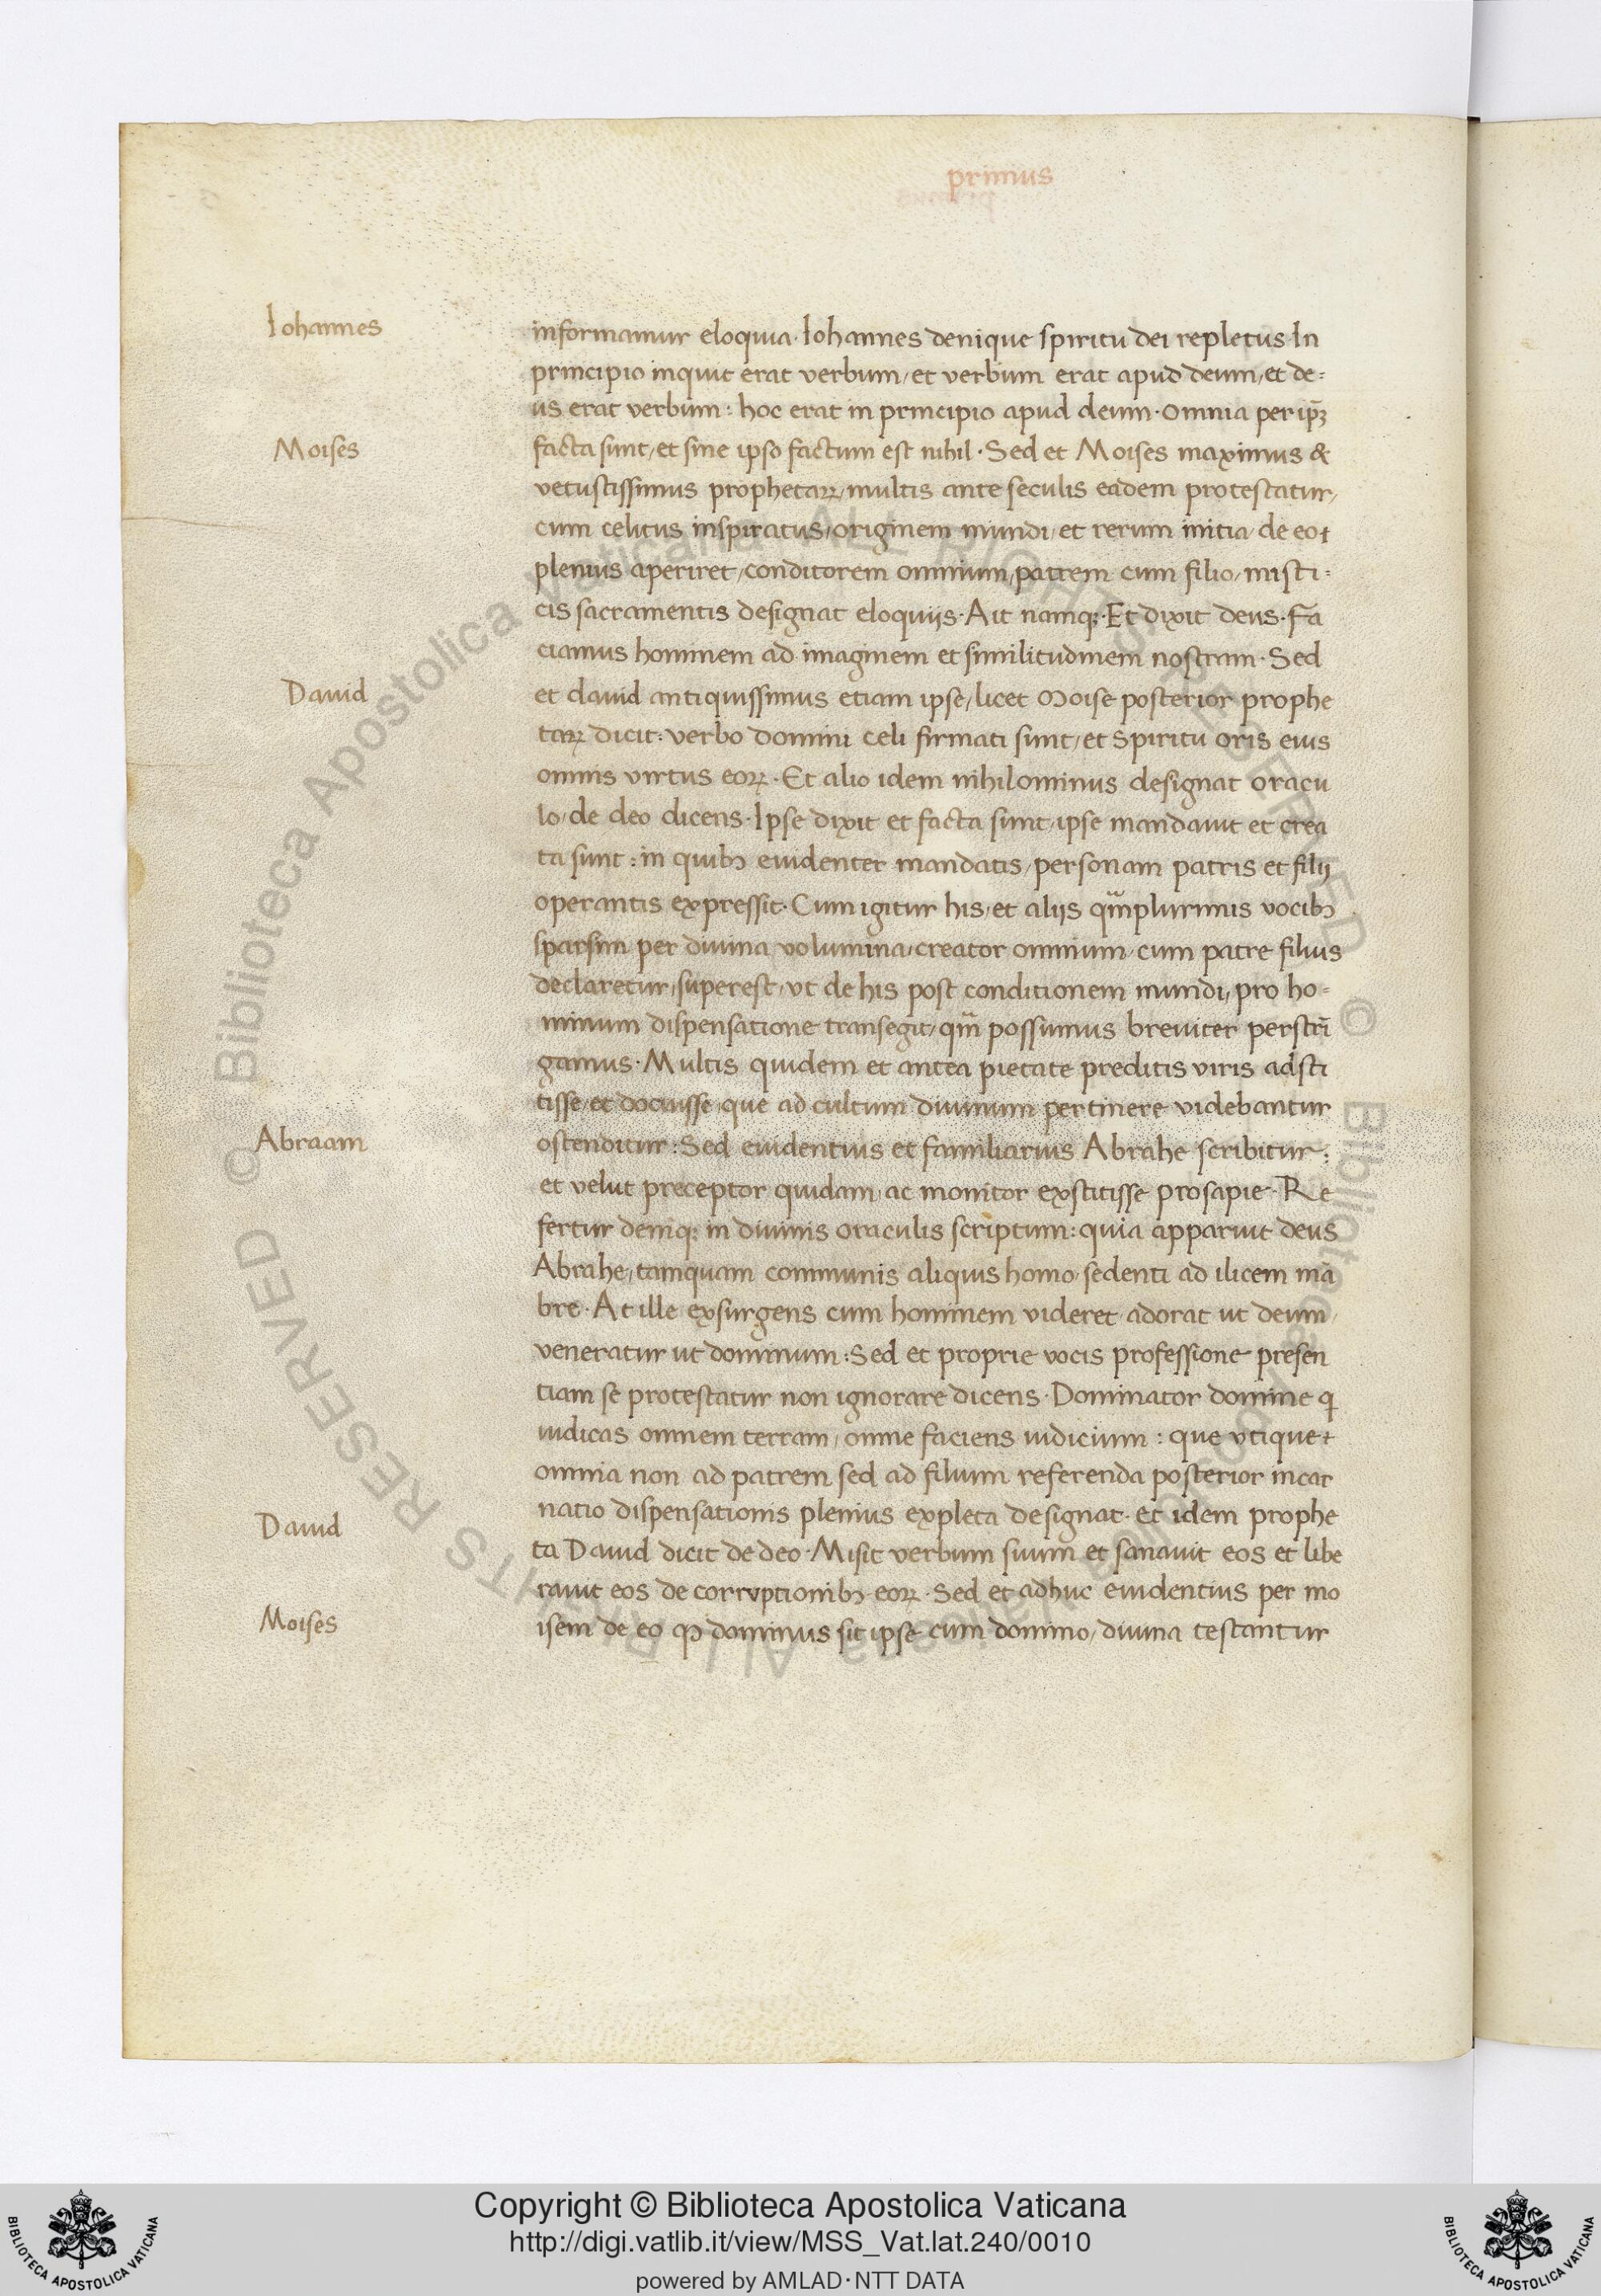 primus
Iohannes
informamur eloquia · Iohannes denique spiritu dei repletus · In
principio inquit erat verbum / et verbum erat apud deum / et de=
us erat verbum : hoc erat in principio apud deum · omnia per ip̄ꝫ
Moises
facta sunt / et sine ipso factum est nihil · Sed et Moises maximus &
vetustissimus prophetaꝝ / multis ante seculis eadem protestatur /
cum celitus inspiratus / originem mundi / et rerum initia / de eo
plenius aperiret / conditorem omnium / patrem cum filio / misti=
cis sacramentis designat eloquijs · Ait namqꝫ · Et dixit deus · Fa
ciamus hominem ad imaginem et similitudinem nostram · Sed
Dauid
et dauid antiquissimus etiam ipse / licet Moise posterior prophe
taꝝ dicit : verbo domini celi firmati sunt / et spiritu oris eius
omnis virtus eoꝝ · Et alio idem nihilominus designat oracu
lo / de deo dicens · Ipse dixit et facta sunt / ipse mandauit et crea
ta sunt : in quibꝫ euidenter mandatis / personam patris et filij
operantis expressit · Cum igitur his / et alijs qm̄plurimis vocibꝫ
sparsim per diuina volumina / creator omnium / cum patre filius
declaretur / superest / vt de his post conditionem mundi / pro ho=
minum dispensatione transegit / qm̄ possumus breuiter perstrī
gamus · Multis quidem et antea pietate preditis viris adsti
tisse / et docuisse que ad cultum diuinum pertinere videbantur
Abraam
ostenditur : Sed euidentius et familiarius Abrahe scribitur :
et velut preceptor quidam / ac monitor exstitisse prosapie · Re
fertur deniqꝫ in diuinis oraculis scriptum : quia apparuit deus
Abrahe / tamquam communis aliquis homo / sedenti ad ilicem mā
bre · At ille exsurgens cum hominem videret / adorat ut deum /
veneratur ut dominum : Sed et proprie vocis professione presen
tiam se protestatur non ignorare dicens · Dominator domine q̣
iudicas omnem terram / omne faciens iudicium : que vtique
omnia non ad patrem sed ad filium referenda posterior incar
natio dispensationis plenius expleta designat · et idem prophe
Dauid
ta Dauid dicit de deo · Misit verbum suum et sanauit eos et libe
rauit eos de corruptionibꝫ eoꝝ · Sed et adhuc euidentius per mo
Moises
isem de eo ꝙ dominus sit ipse cum domino / diuina testantur
© Biblioteca Apostolica Vaticana ALL RIGHTS RESERVED © Biblioteca Apostolica Vaticana ALL RIGHTS RESERVED
Copyright © Biblioteca Apostolica Vaticana
http://digi.vatlib.it/view/MSS_Vat.lat.240/0010
powered by AMLAD · NTT DATA
BIBLIOTECA APOSTOLICA VATICANA
BIBLIOTECA APOSTOLICA VATICANA